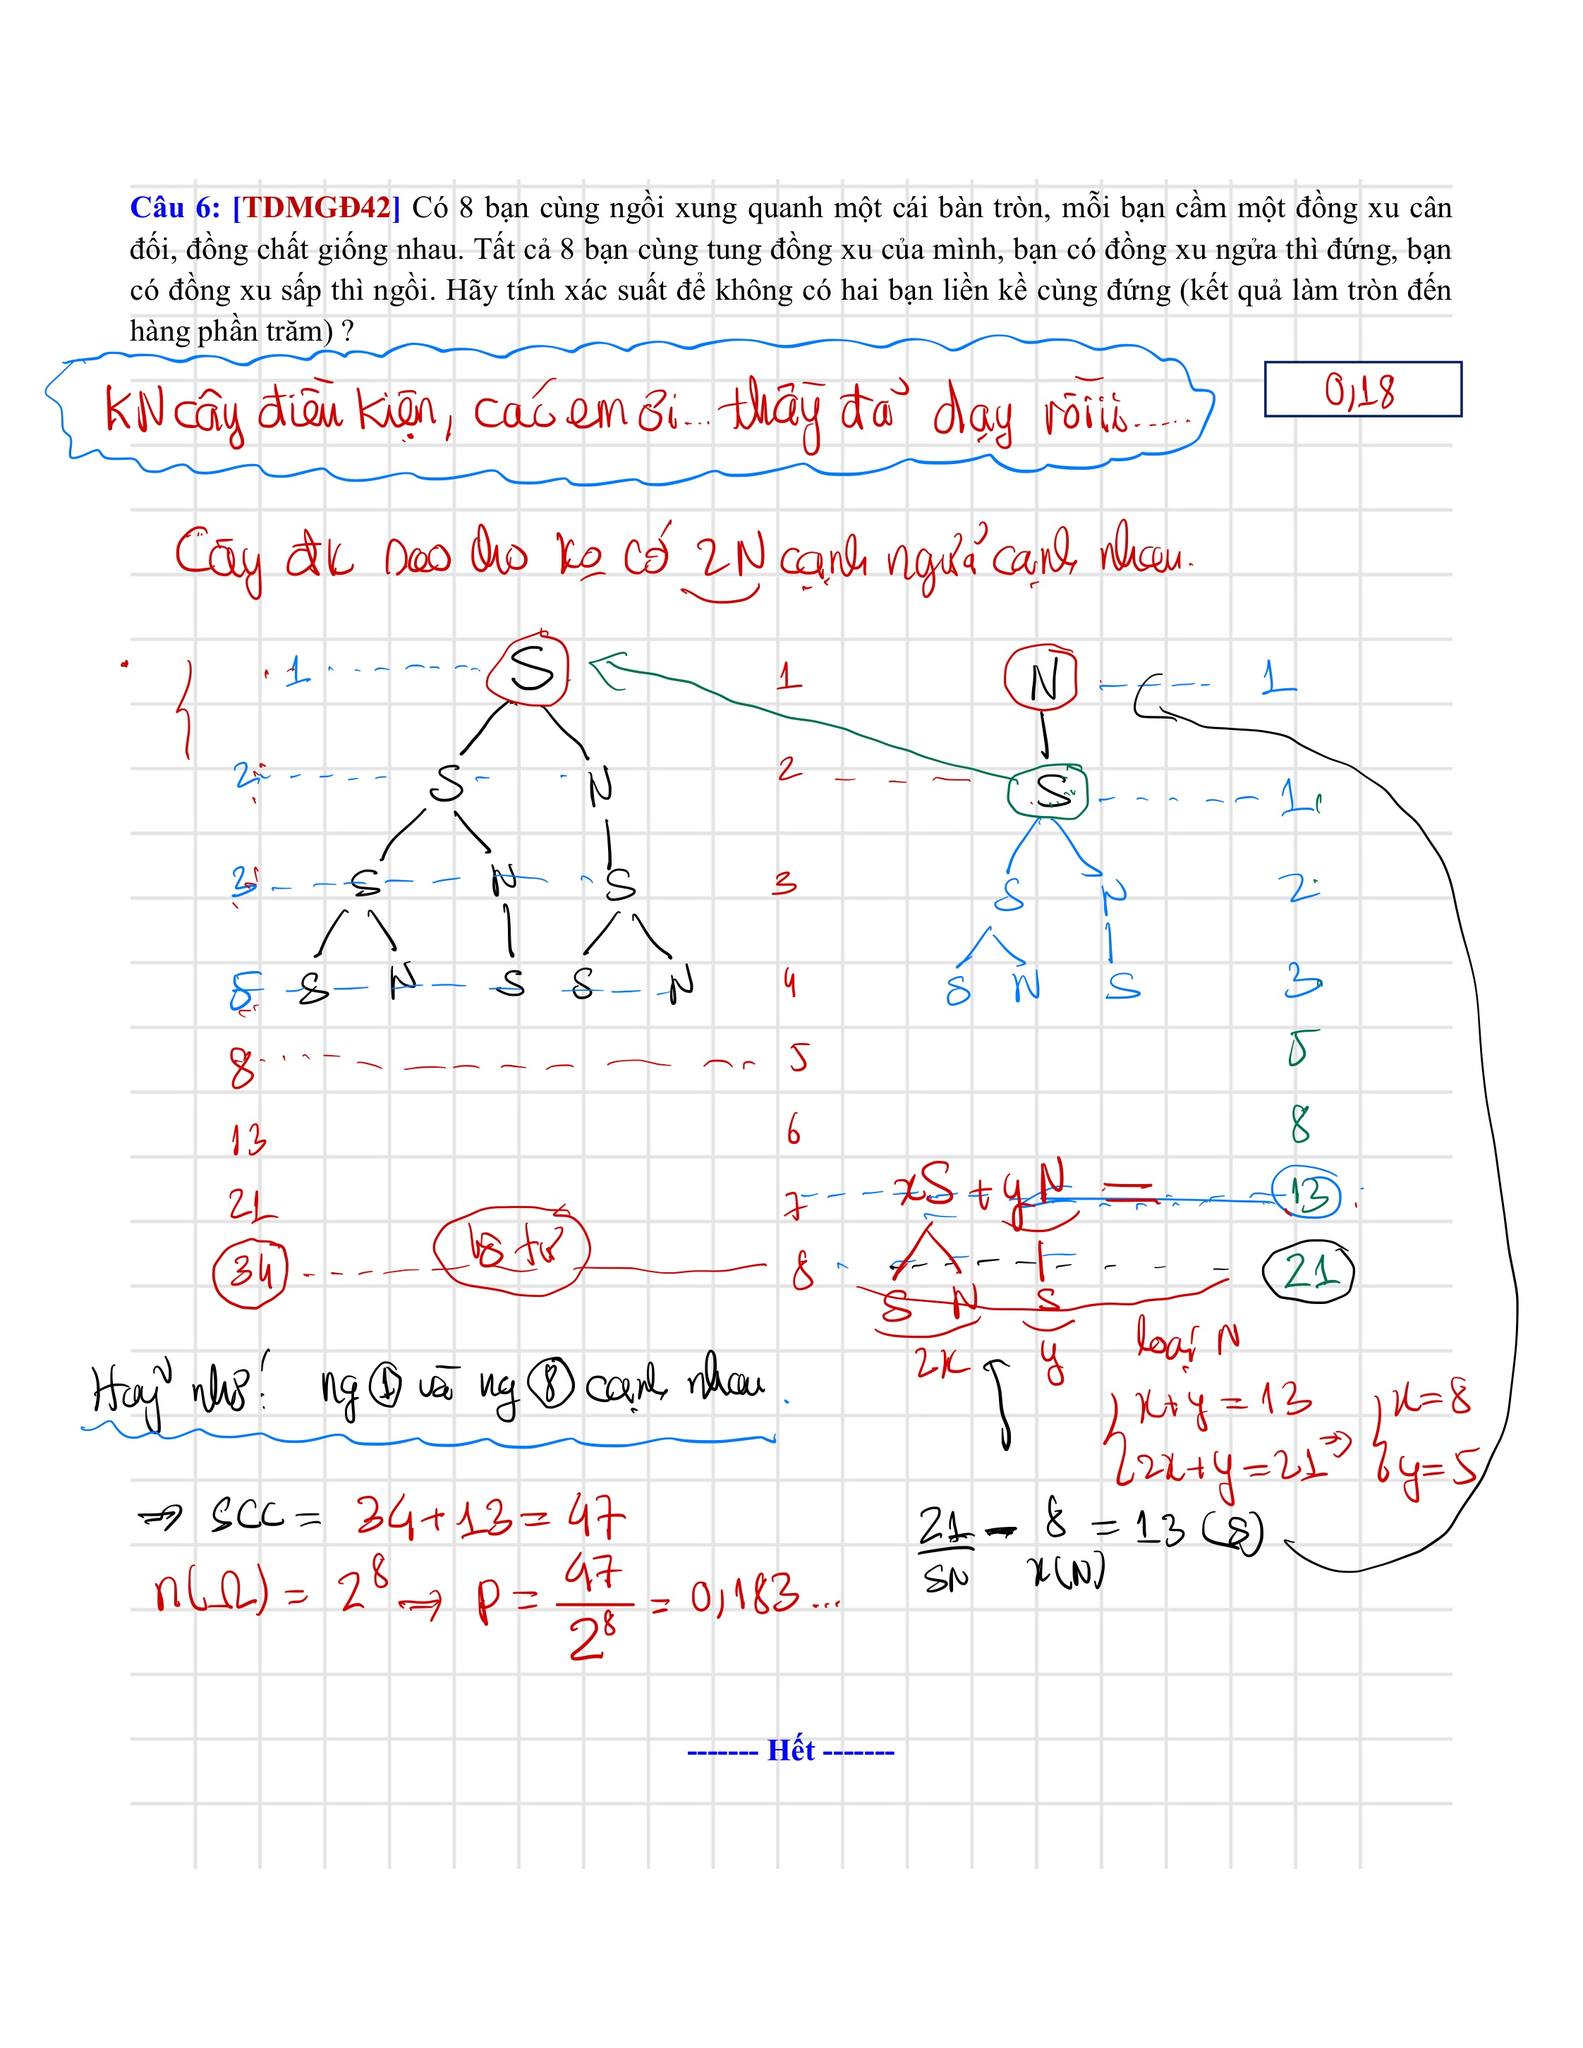 Câu 6: [TDMGĐ42] Có 8 bạn cùng ngồi xung quanh một cái bàn tròn, mỗi bạn cầm một đồng xu cân
đối, đồng chất giống nhau. Tất cả 8 bạn cùng tung đồng xu của mình, bạn có đồng xu ngửa thì đứng, bạn
có đồng xu sấp thì ngồi. Hãy tính xác suất để không có hai bạn liền kề cùng đứng (kết quả làm tròn đến
hàng phần trăm) ?
0,18
KN cây điều kiện, các em ơi... thầy đã dạy rồiii.....
Cây đk sao cho ko có 2N cạnh ngửa cạnh nhau.
1 S 1 N 1
2 S N 2 S 1
3 S N S 3 S N 2
5 S N S S N 4 S N S 3
8 5 5
13 6 8
21 7 xS + yN = 13
34 8 21
S N S
2x y loại N
Hãy nhớ! ng 1 và ng 8 cạnh nhau.
x+y=13 x=8
2x+y=21 => y=5
=> SCC = 34+13=47
21 - 8 = 13 (S)
SN x(N)
n(Ω) = 2^8 => P = 47/2^8 = 0,183...
------- Hết -------